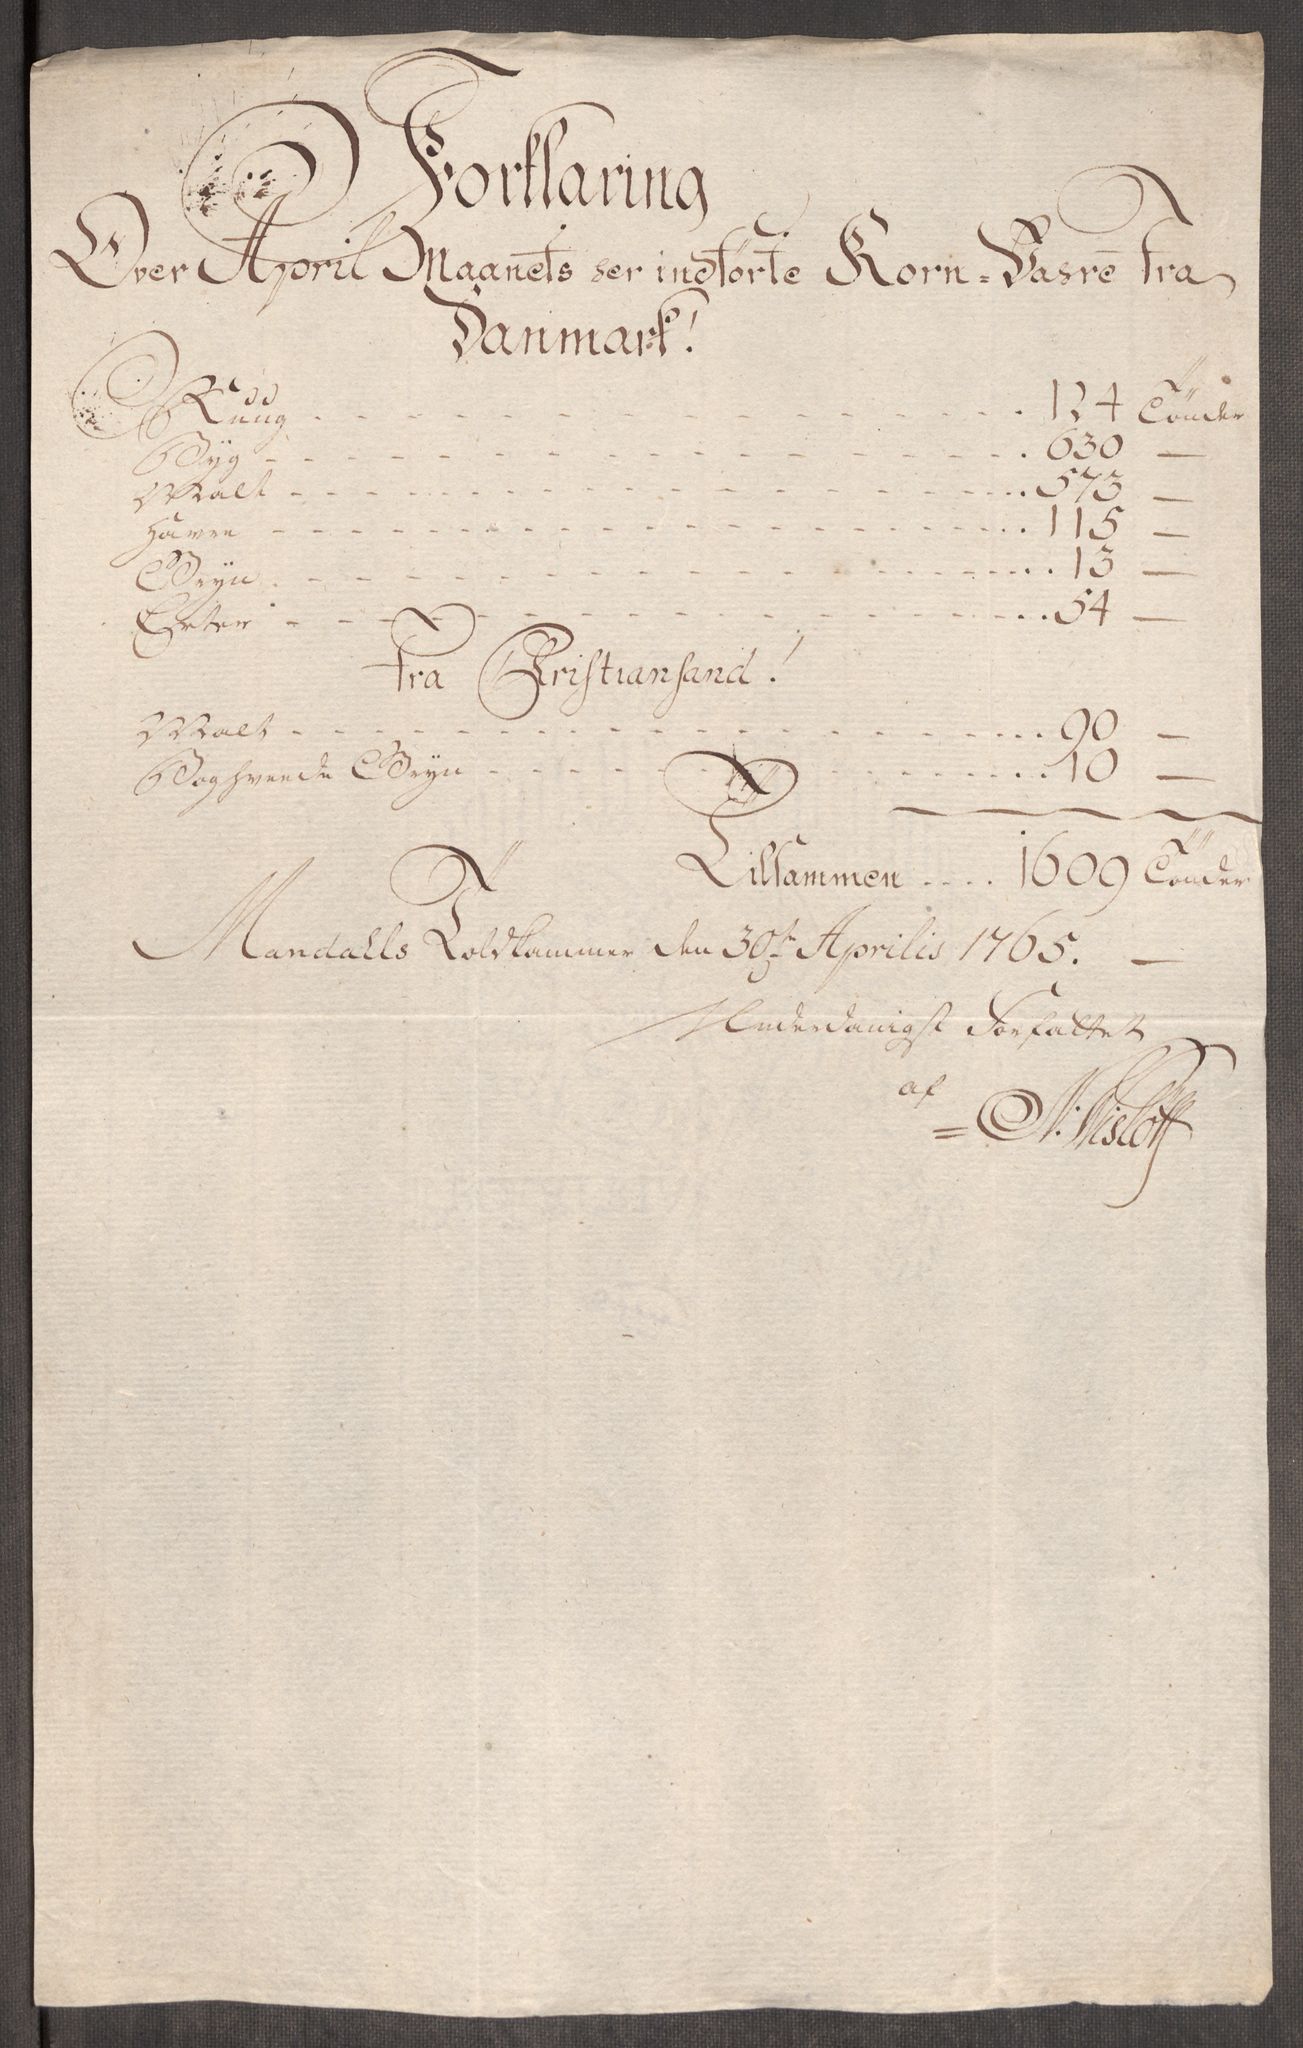 Forklaring
Over April Maanets her indførte Korn=Vahre fra
Danmark!
Ruug 124 Tönder
Byg 630 —
Malt 573 —
Havre 115 —
Gryn 13 —
Erter 54 —
fra Christiansand!
Malt 90 —
Boghvede Gryn 10 —
Tilsammen .... 1609 Tönder
Mandahls Toldkammer den 30te Aprilis 1765. —
Underdanigst Forfattet
af
= N: Wisløff